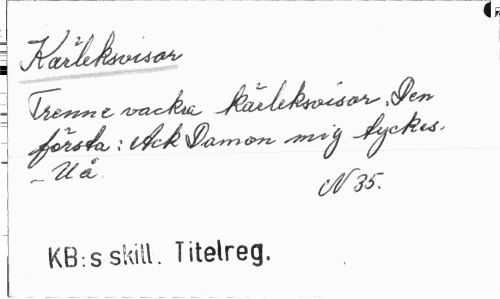 Kärleksvisor
Trenne vackra kärleksvisor. Den
första: Ack Damon mig tyckes.
- U å.
N 35.
KB:s skill. Titelreg.